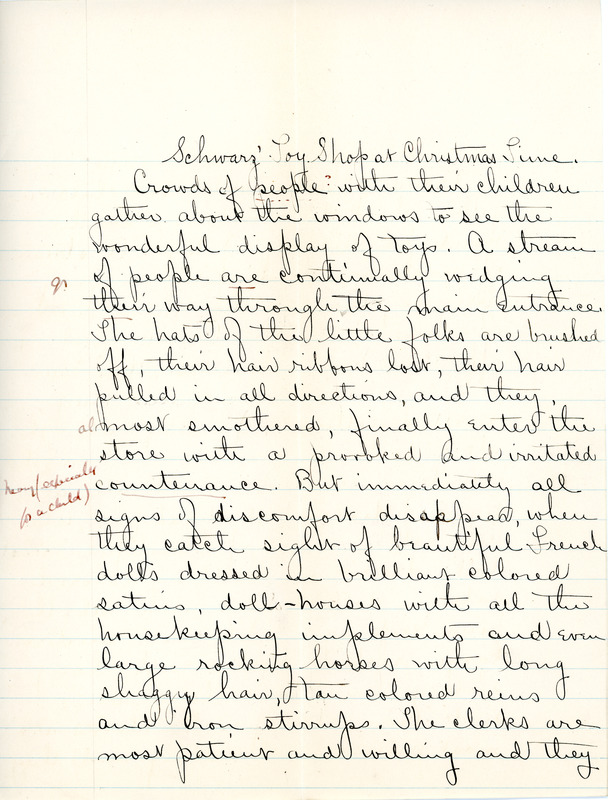 Schwarz' Toy Shop at Christmas Time.
Crowds of people with their children
gather about the windows to see the
wonderful display of toys. A stream
of people are continually wedging
gr
their way through the main entrance.
The hats of the little folks are brushed
off, their hair ribbons lost, their hair
pulled in all directions, and they,
almost smothered, finally enter the
store with a provoked and irritated
heavy (especially
countenance. But immediately all
for a child)
signs of discomfort disappear, when
they catch sight of beautiful French
dolls dressed in brilliant colored
satins, doll-houses with all the
housekeeping implements and even
large rocking horses with long
shaggy hair, tan colored reins
and iron stirrups. The clerks are
most patient and willing and they